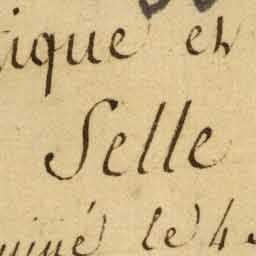 tique et
Selle
miné le 4